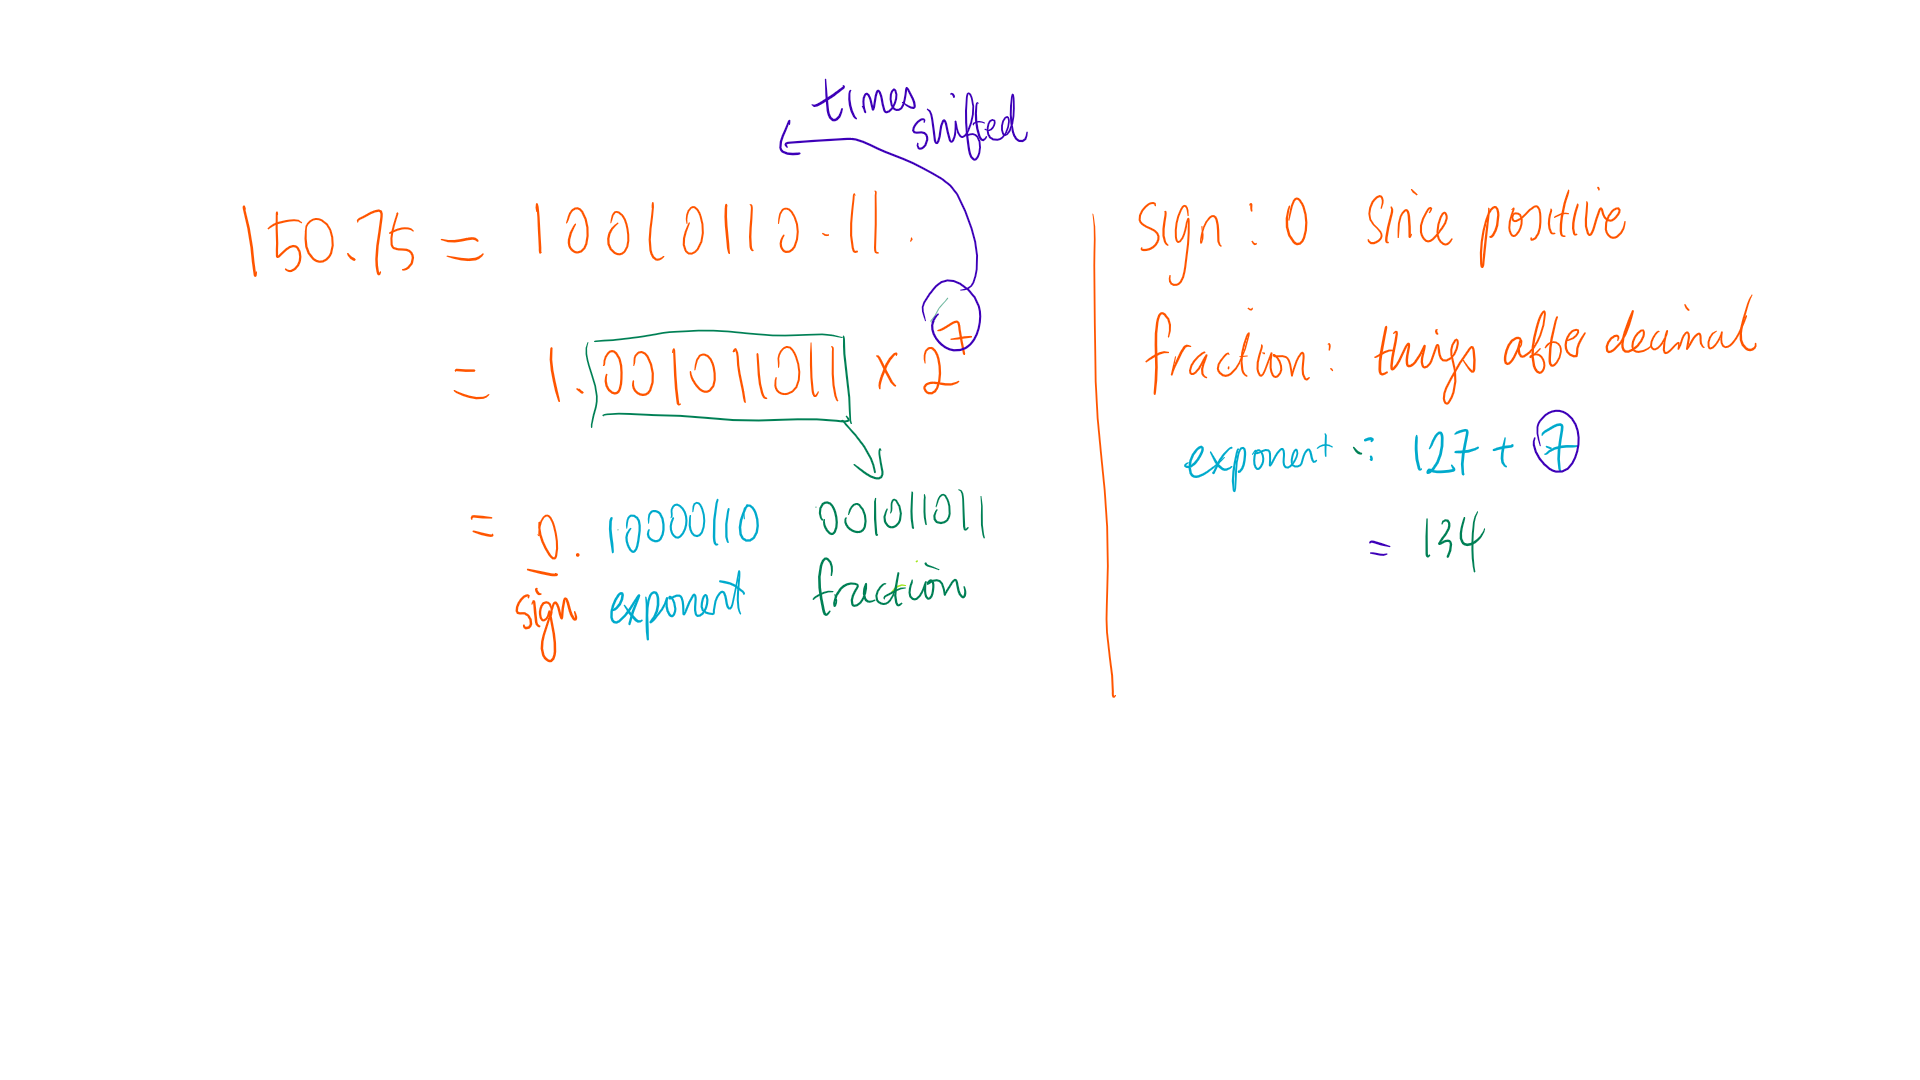 times
shifted
150.75 = 10010110.11.
= 1.001011011 x 2^7
= 0. 10000110 001011011
sign exponent fraction
sign: 0 since positive
fraction: things after decimal
exponent : 127 + 7
= 134